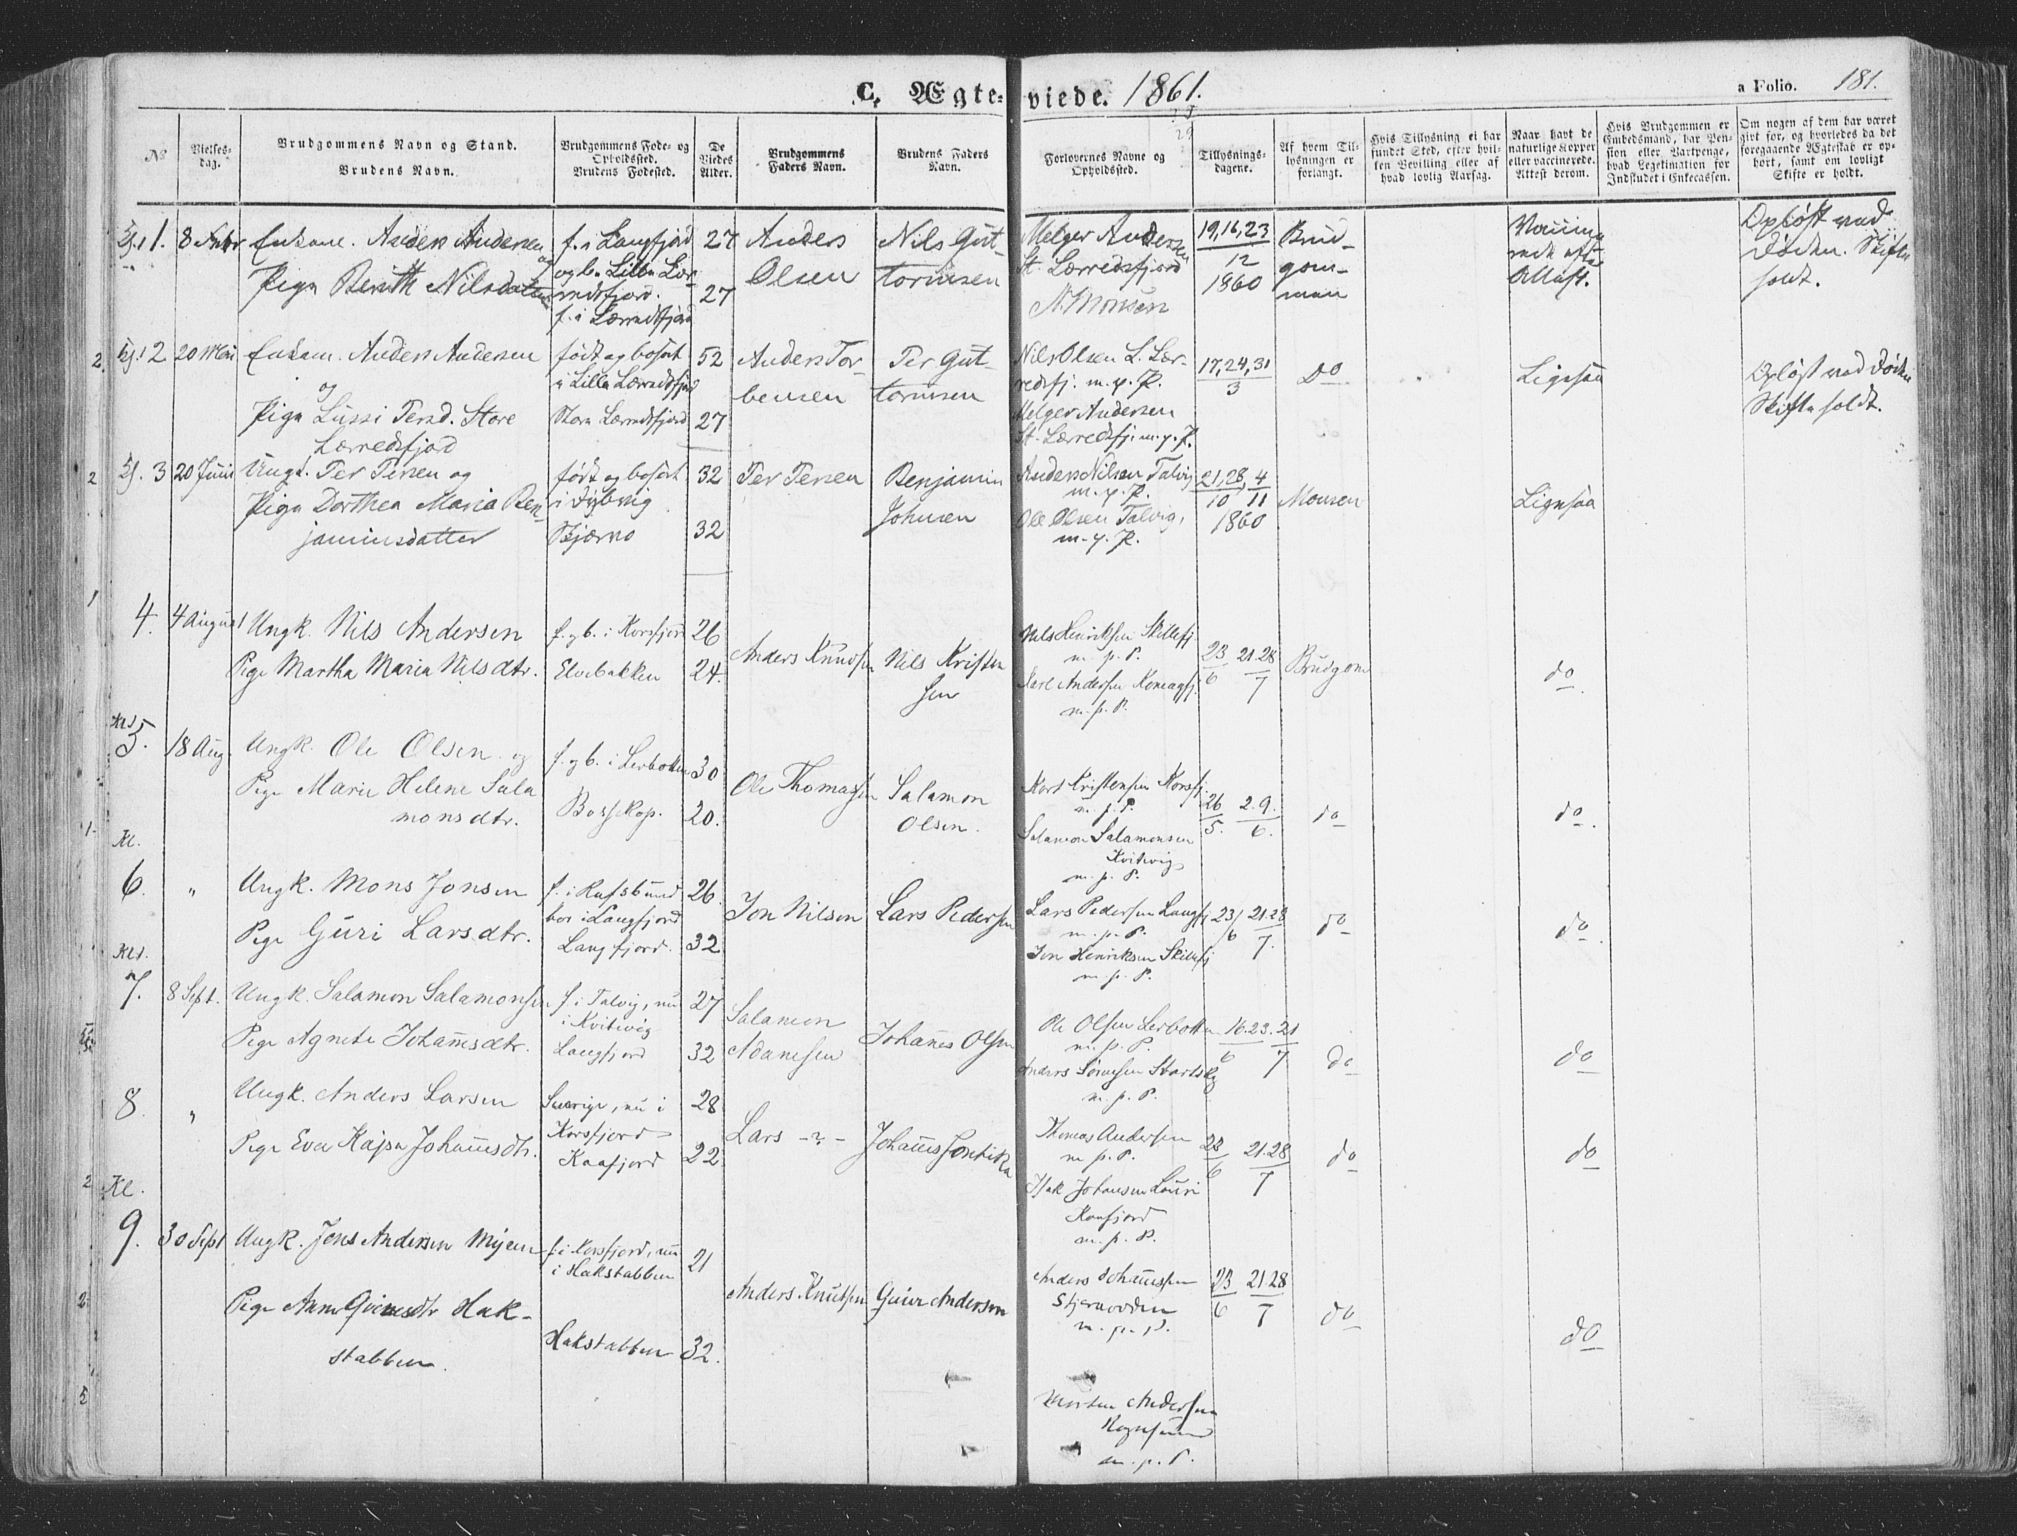 C. Ægteviede. 1861.
a Folio. 181.
No
Vielses-
dag.
Brudgommens Navn og Stand.
Brudens Navn.
Brudgommens Føde- og
Opholdssted.
Brudens Fødested.
De
Viedes
Alder.
Brudgommens
Faders Navn.
Brudens Faders
Navn.
Forlovernes Navne og
Opholdssted.
Tillysnings-
dagene.
Af hvem Til-
lysningen er
forlangt.
Hvis Tillysning ei har
fundet Sted, efter hvil-
ken Bevilling eller af
hvad lovlig Aarsag.
Naar havt de
naturlige Kopper
eller vaccinerede.
Attest derom.
Hvis Brudgommen er
Embedsmand, har Pen-
sion eller Vartpenge,
hvad Legitimation for
Indskudet i Enkecassen.
Om nogen af dem har været
givt for, og hvorledes da det
foregaaende Ægteskab er op-
hørt, samt om lovligt
Skifte er holdt.
1. 8 Enkem. Anders Andersen
og
Pige Berith Nilsdatter
f. i Langfjord
og b. i Lille Lær-
redsfjord.
f. i Lærredsfjord
27
27
Anders
Olsen
Nils Gut-
tormsen
Melger Andersen
St. Lærredsfjord
N. Monsen
19, 16, 23
12
1860
Brud-
gom-
men
Attest.
Opløst ved
Døden. Skifte
holdt.
2 20 Mai Enkem. Anders Andersen
og
Pige Lussi Persd. Store
Lærredsfjord
født og bosat
i Lille Lærredsfjord
Store Lærredsfjord
52
27
Anders Tor-
bensen
Per Gut-
tormsen
Nils Olsen L. Lær-
redsfj. m. p. P.
Melger Andersen
St. Lærredsfj. m. p. P.
17, 24, 31
3
Do
Ligesaa
Opløst ved Døden
Skifte holdt.
3 20 Juni Ungk. Per Persen og
Pige Dorthea Maria Ben-
jaminsdatter
født og bosat
i
Stjernø
32
32
Per Persen
Benjamin
Johnsen
Anders Nilsen Talvig
m. p. P.
Ole Olsen Talvig,
m. p. P.
21, 28, 4
10 11
1860
Monsen
Ligesaa
4. 4 August Ungk. Nils Andersen
Pige Martha Maria Nilsdtr.
f. og b. i Korsfjord
Elvebakken
26
24.
Anders Knudsen
Nils Kristen
sen
Nils Henriksen Skillefj
m. p. P.
Karl Andersen Komagfj.
m. p. P.
23 21.28
6 7
Brudgom
do
5. 18 Aug. Ungk. Ole Olsen og
Pige Marie Helene Sala
monsdtr.
f. og b. i Lerbotten
Bossekop.
30
20.
Ole Thomassen
Salamon
Olsen.
Kort Kristensen Korsfj.
m. p. P.
Salamon Salamonsen
Kvitvig
m. p. P.
26 2.9.
5. 6.
do
do.
Kl.
6. " Ungk. Mons Jonsen
Pige Guri Larsdtr.
f. i Rafsbund
bor i Langfjord
Langfjord.
26.
32
Jon Nilsen
Lars Pedersen
Lars Pedersen Langfj
m. p. P.
Jon Henriksen Skillefj
m. p. P.
23/6 21.28
7.
do
do
7. 8 Sept. Ungk. Salamon Salamonsen
Pige Agnete Johannesdtr.
f. i Talvig, nu
i Kvitvig
Langfjord
27
32
Salamon
Adamsen
Johannes Olsen
Ole Olsen Lerbotten
m. p. P.
Anders Sørensen
m. p. P.
16.23. 21
6 7
do
do
8. " Ungk. Anders Larsen
Pige Eva Kajsa Johannesdtr.
Sverige, nu i
Korsfjord
Kaafjord
28
22
Lars - ? -
Johannes
Thomas Andersen
m. p. P.
Isak Johansen Lauri
Kaafjord
m. p. P.
23 21.28
6 7
do
do
Kl.
9. 30 Sept Ungk. Jens Andersen
Pige Anne Hak-
stabben.
f. i Korsfjord, nu
i Hakstabben
Hakstabben
21
32.
Anders Knutsen
Andersen
Anders Johannessen
Stjernodden
m. p. P.
Morten Andersen
Rognsund
m. p. P.
23 21.28
6 7
do
do